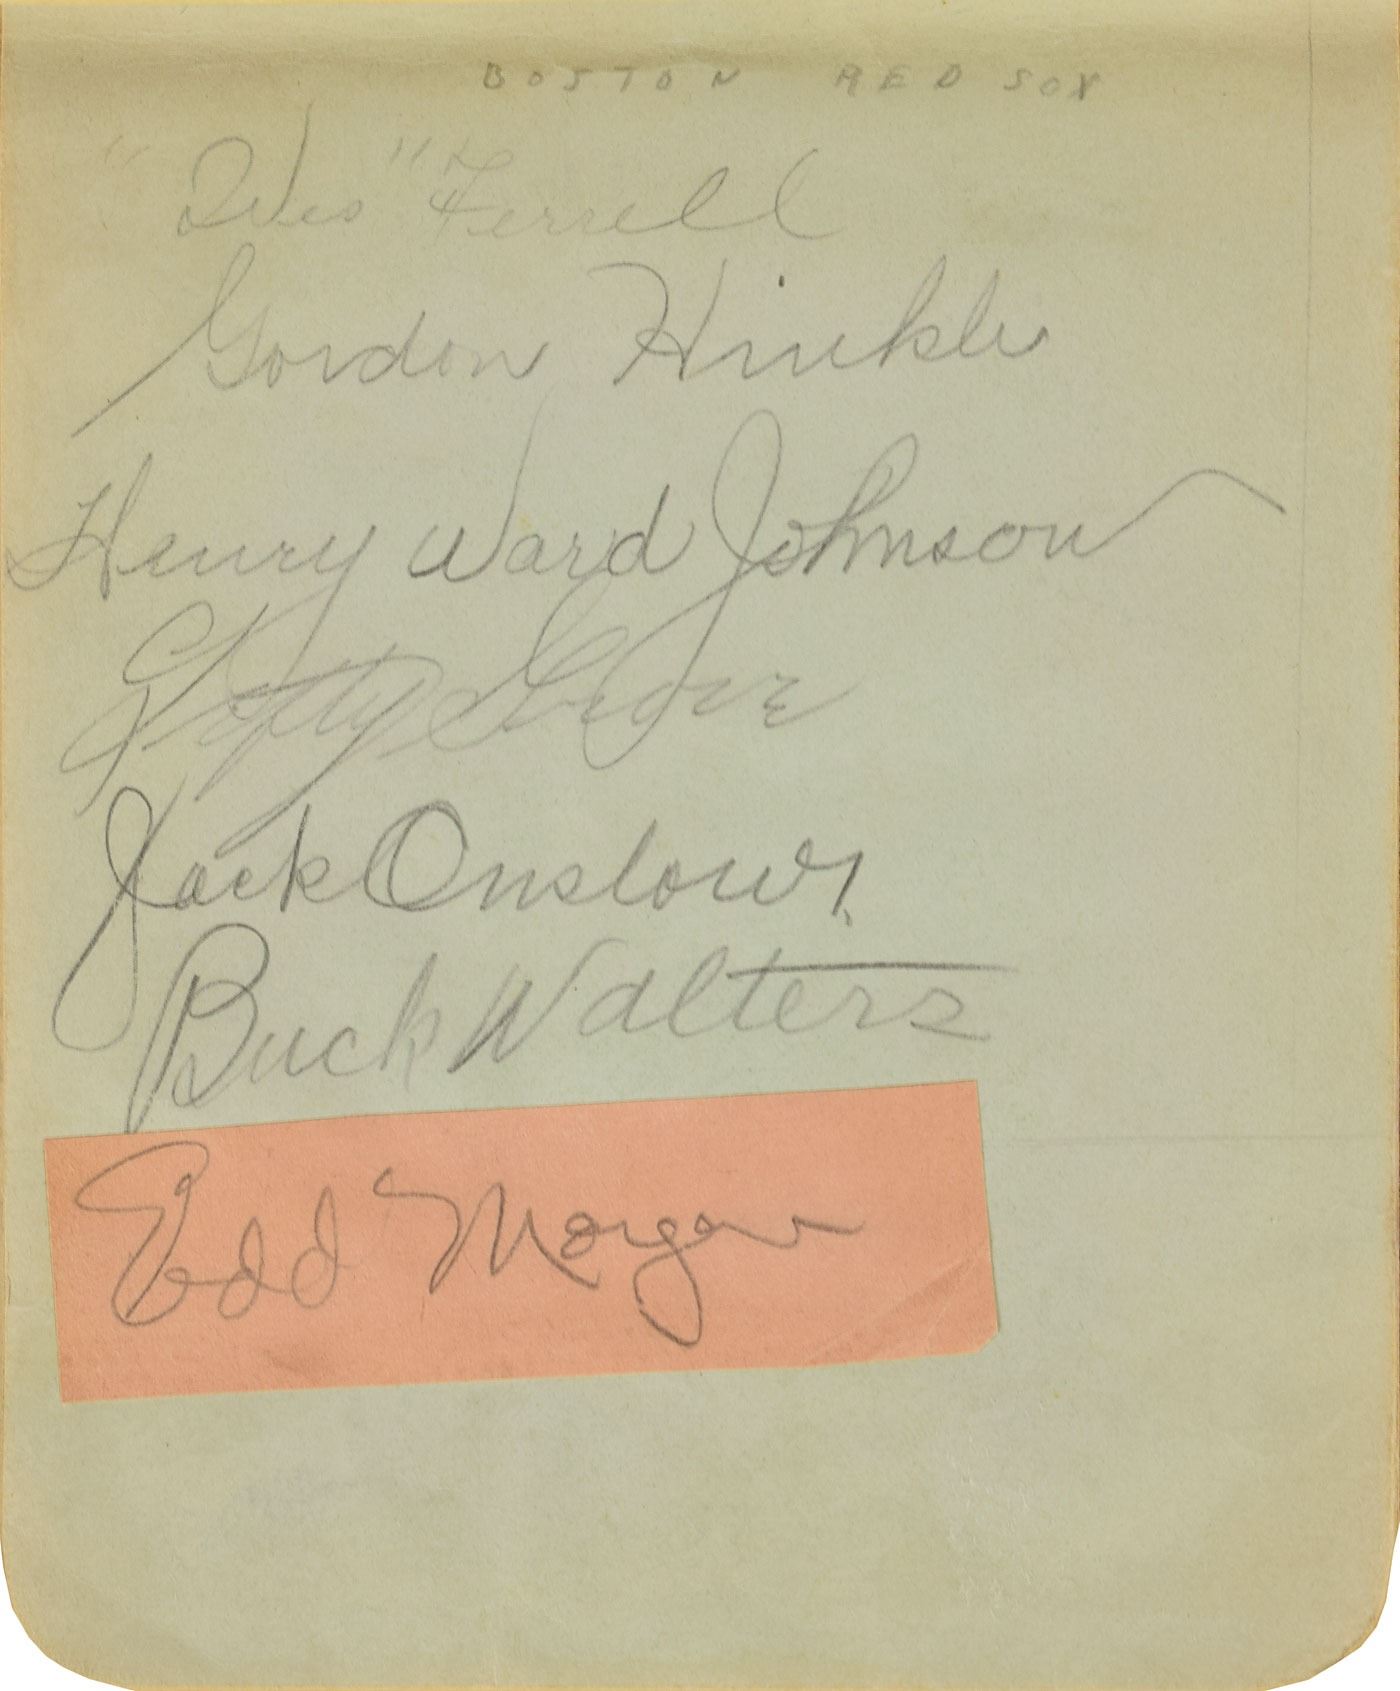 BOSTON RED SOX
"Wes" Ferrell
Gordon Hinkle
Henry Ward Johnson
Lefty Grove
Jack Onslow.
Buck Walters
Edd Morgan